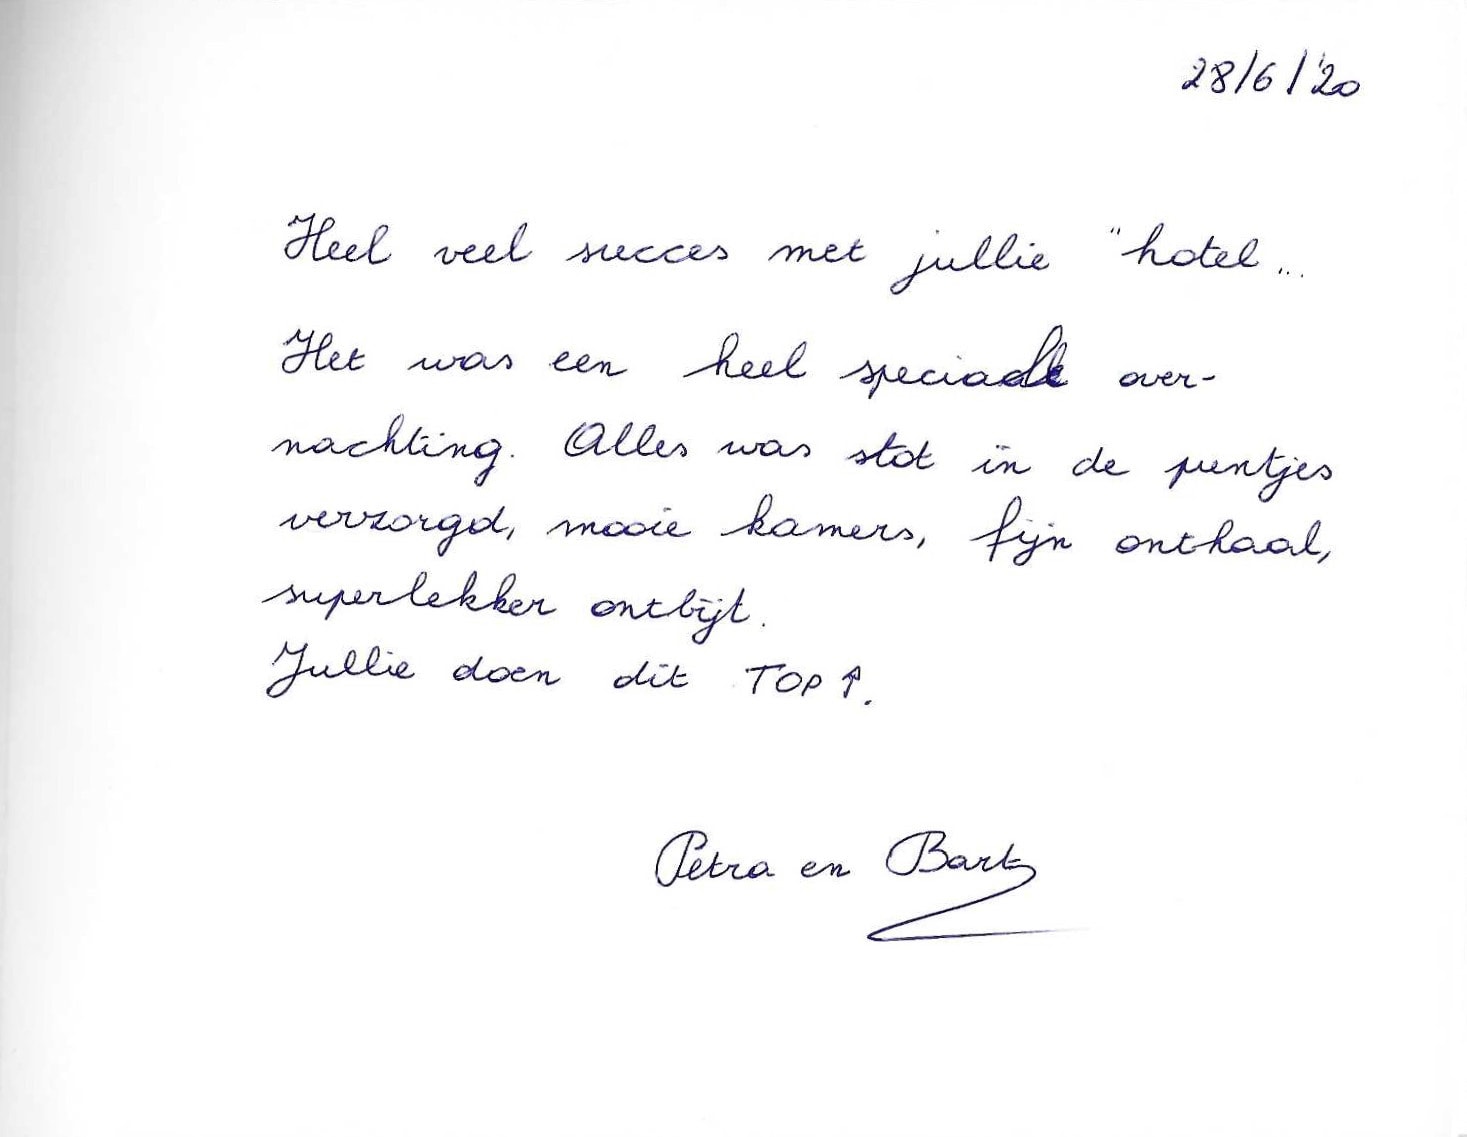 28/6/'20
Heel veel succes met jullie "hotel„..
Het was een heel speciale over-
nachting. Alles was stot in de puntjes
verzorgd, mooie kamers, fijn onthaal,
superlekker ontbijt.
Jullie doen dit TOP↑.
Petra en Bart